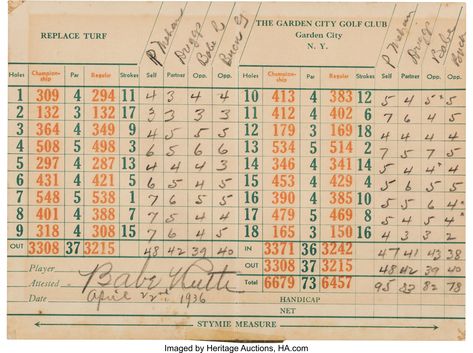 REPLACE TURF
THE GARDEN CITY GOLF CLUB
Garden City
N. Y.
Holes Champion-ship Par Regular Strokes Self Partner Opp. Opp.
1 309 4 294 11 4 3 4 4
2 132 3 132 17 3 3 3 3
3 364 4 349 9 4 5 5 5
4 508 5 498 3 6 5 6 6
5 297 4 287 13 4 4 4 3
6 431 4 421 5 6 5 4 5
7 548 5 538 1 7 6 5 5
8 401 4 388 7
9 418 4 308 15 7 6 4 5
OUT 3308 37 3215 48 42 39 40
Holes Champion-ship Par Regular Strokes Self Partner Opp. Opp.
10 413 4 383 12 5 4 5 5
11 412 4 402 6 7 6 4 5
12 179 3 169 18 4 4 4 4
13 534 5 514 2 7 5 7 5
14 346 4 341 14 5 4 4 4
15 453 4 429 4 5 6 5 5
16 390 4 385 10 5 5 6 4
17 479 5 469 8 5 4 5 4
18 165 3 150 16 4 3 3 2
IN 3371 36 3242 47 41 43 38
OUT 3308 37 3215 48 42 39 40
Total 6679 73 6457 95 83 82 78
HANDICAP
NET
Player
Attested Babe Ruth
Date April 22nd 1936
STYMIE MEASURE
Imaged by Heritage Auctions, HA.com